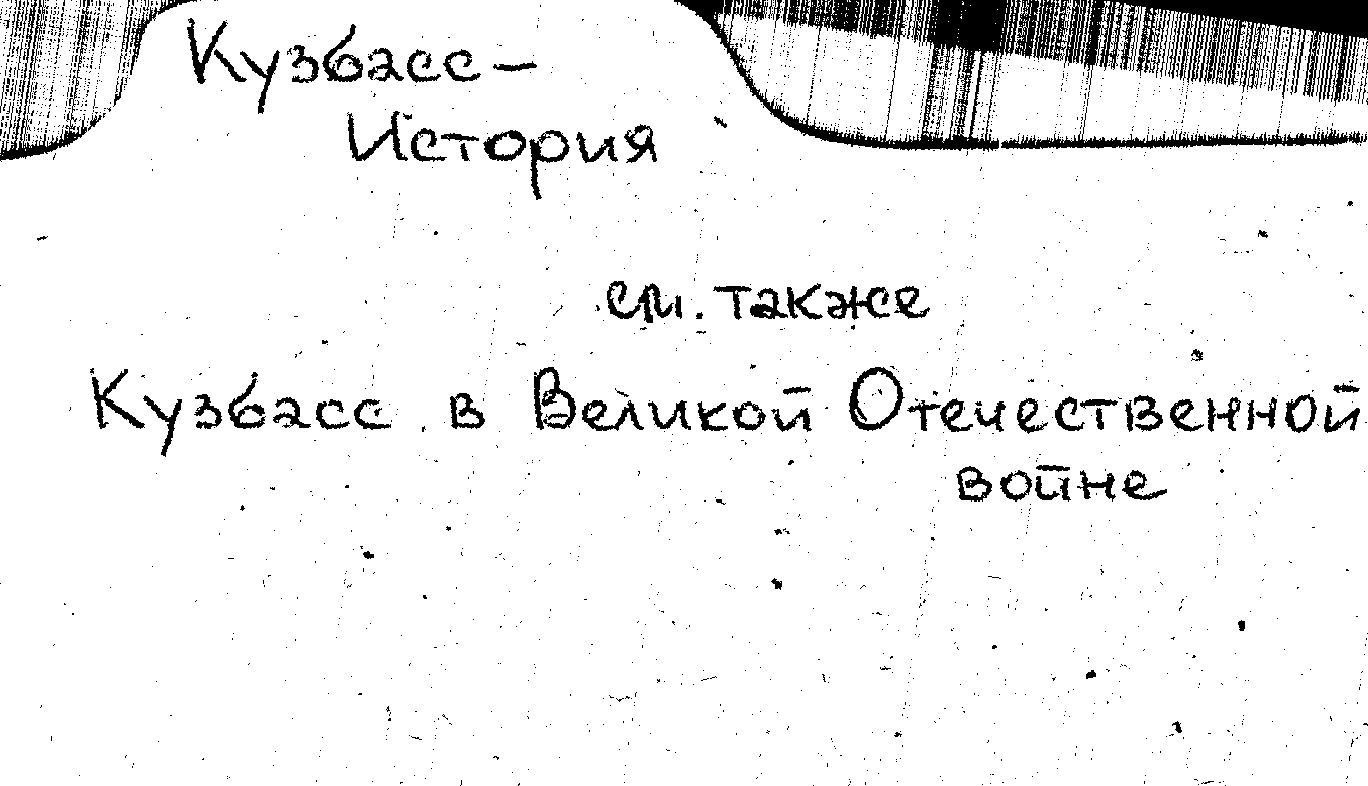 Кузбасс –
История
см. также
Кузбасс в Великой Отечественной
войне